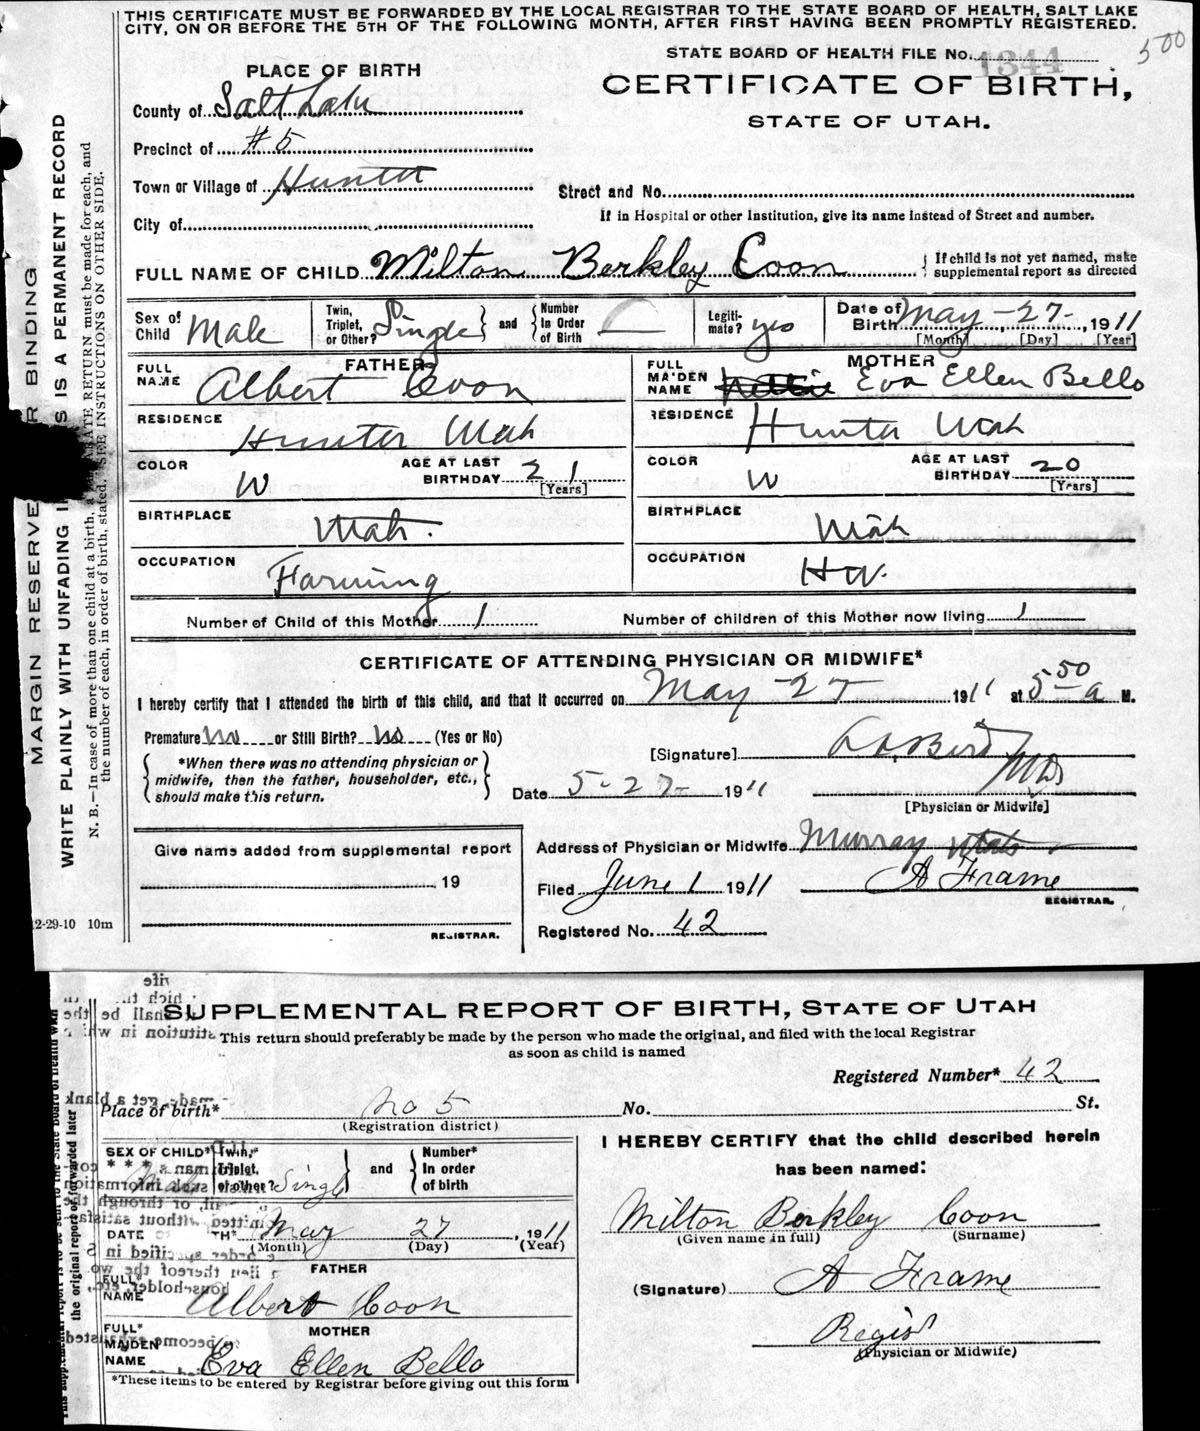 THIS CERTIFICATE MUST BE FORWARDED BY THE LOCAL REGISTRAR TO THE STATE BOARD OF HEALTH, SALT LAKE
CITY, ON OR BEFORE THE 5TH OF THE FOLLOWING MONTH, AFTER FIRST HAVING BEEN PROMPTLY REGISTERED.
500
STATE BOARD OF HEALTH FILE No. 1344
PLACE OF BIRTH
CERTIFICATE OF BIRTH,
STATE OF UTAH.
County of Salt Lake
Precinct of #5
Town or Village of Hunter
Street and No.
City of
If in Hospital or other Institution, give its name instead of Street and number.
FULL NAME OF CHILD Milton Berkley Coon
If child is not yet named, make
supplemental report as directed
Sex of Child Male
Twin, Triplet, or Other? Single
and
Number In Order of Birth
Legiti-mate? yes
Date of Birth May - 27- , 1911
[Month] [Day] [Year]
FATHER
FULL NAME Albert Coon
RESIDENCE Hunter Utah
COLOR W
AGE AT LAST BIRTHDAY 21
[Years]
BIRTHPLACE Utah.
OCCUPATION Farming
MOTHER
FULL MAIDEN NAME Nettie Eva Ellen Bello
RESIDENCE Hunter Utah
COLOR W
AGE AT LAST BIRTHDAY 20
[Years]
BIRTHPLACE Utah
OCCUPATION HW.
Number of Child of this Mother 1
Number of children of this Mother now living 1
CERTIFICATE OF ATTENDING PHYSICIAN OR MIDWIFE*
I hereby certify that I attended the birth of this child, and that it occurred on May - 27 1911 at 5 50 a M.
Premature No or Still Birth? No (Yes or No)
*When there was no attending physician or
midwife, then the father, householder, etc.,
should make this return.
[Signature] Bird MD
Date 5-27- 1911
[Physician or Midwife]
Give name added from supplemental report
, 19
REGISTRAR.
Address of Physician or Midwife Murray Utah
Filed June 1 1911
A Frame
REGISTRAR.
Registered No. 42
MARGIN RESERVE R BINDING
WRITE PLAINLY WITH UNFADING I S IS A PERMANENT RECORD
N. B.—In case of more than one child at a birth, a RATE RETURN must be made for each, and
the number of each, in order of birth, stated. SEE INSTRUCTIONS ON OTHER SIDE.
2-29-10 10m
SUPPLEMENTAL REPORT OF BIRTH, STATE OF UTAH
This return should preferably be made by the person who made the original, and filed with the local Registrar
as soon as child is named
Registered Number* 42
Place of birth* No 5 No. St.
(Registration district)
SEX OF CHILD* Male
Twin,* Triplet, or other? Single
and
Number* In order of birth
DATE TH* May 27 , 1911
(Month) (Day) (Year)
FATHER
FULL* NAME Albert Coon
MOTHER
FULL* MAIDEN NAME Eva Ellen Bello
*These items to be entered by Registrar before giving out this form
I HEREBY CERTIFY that the child described herein
has been named:
Milton Berkley Coon
(Given name in full) (Surname)
(Signature) A Frame
Regist
(Physician or Midwife)
the original report forwarded later